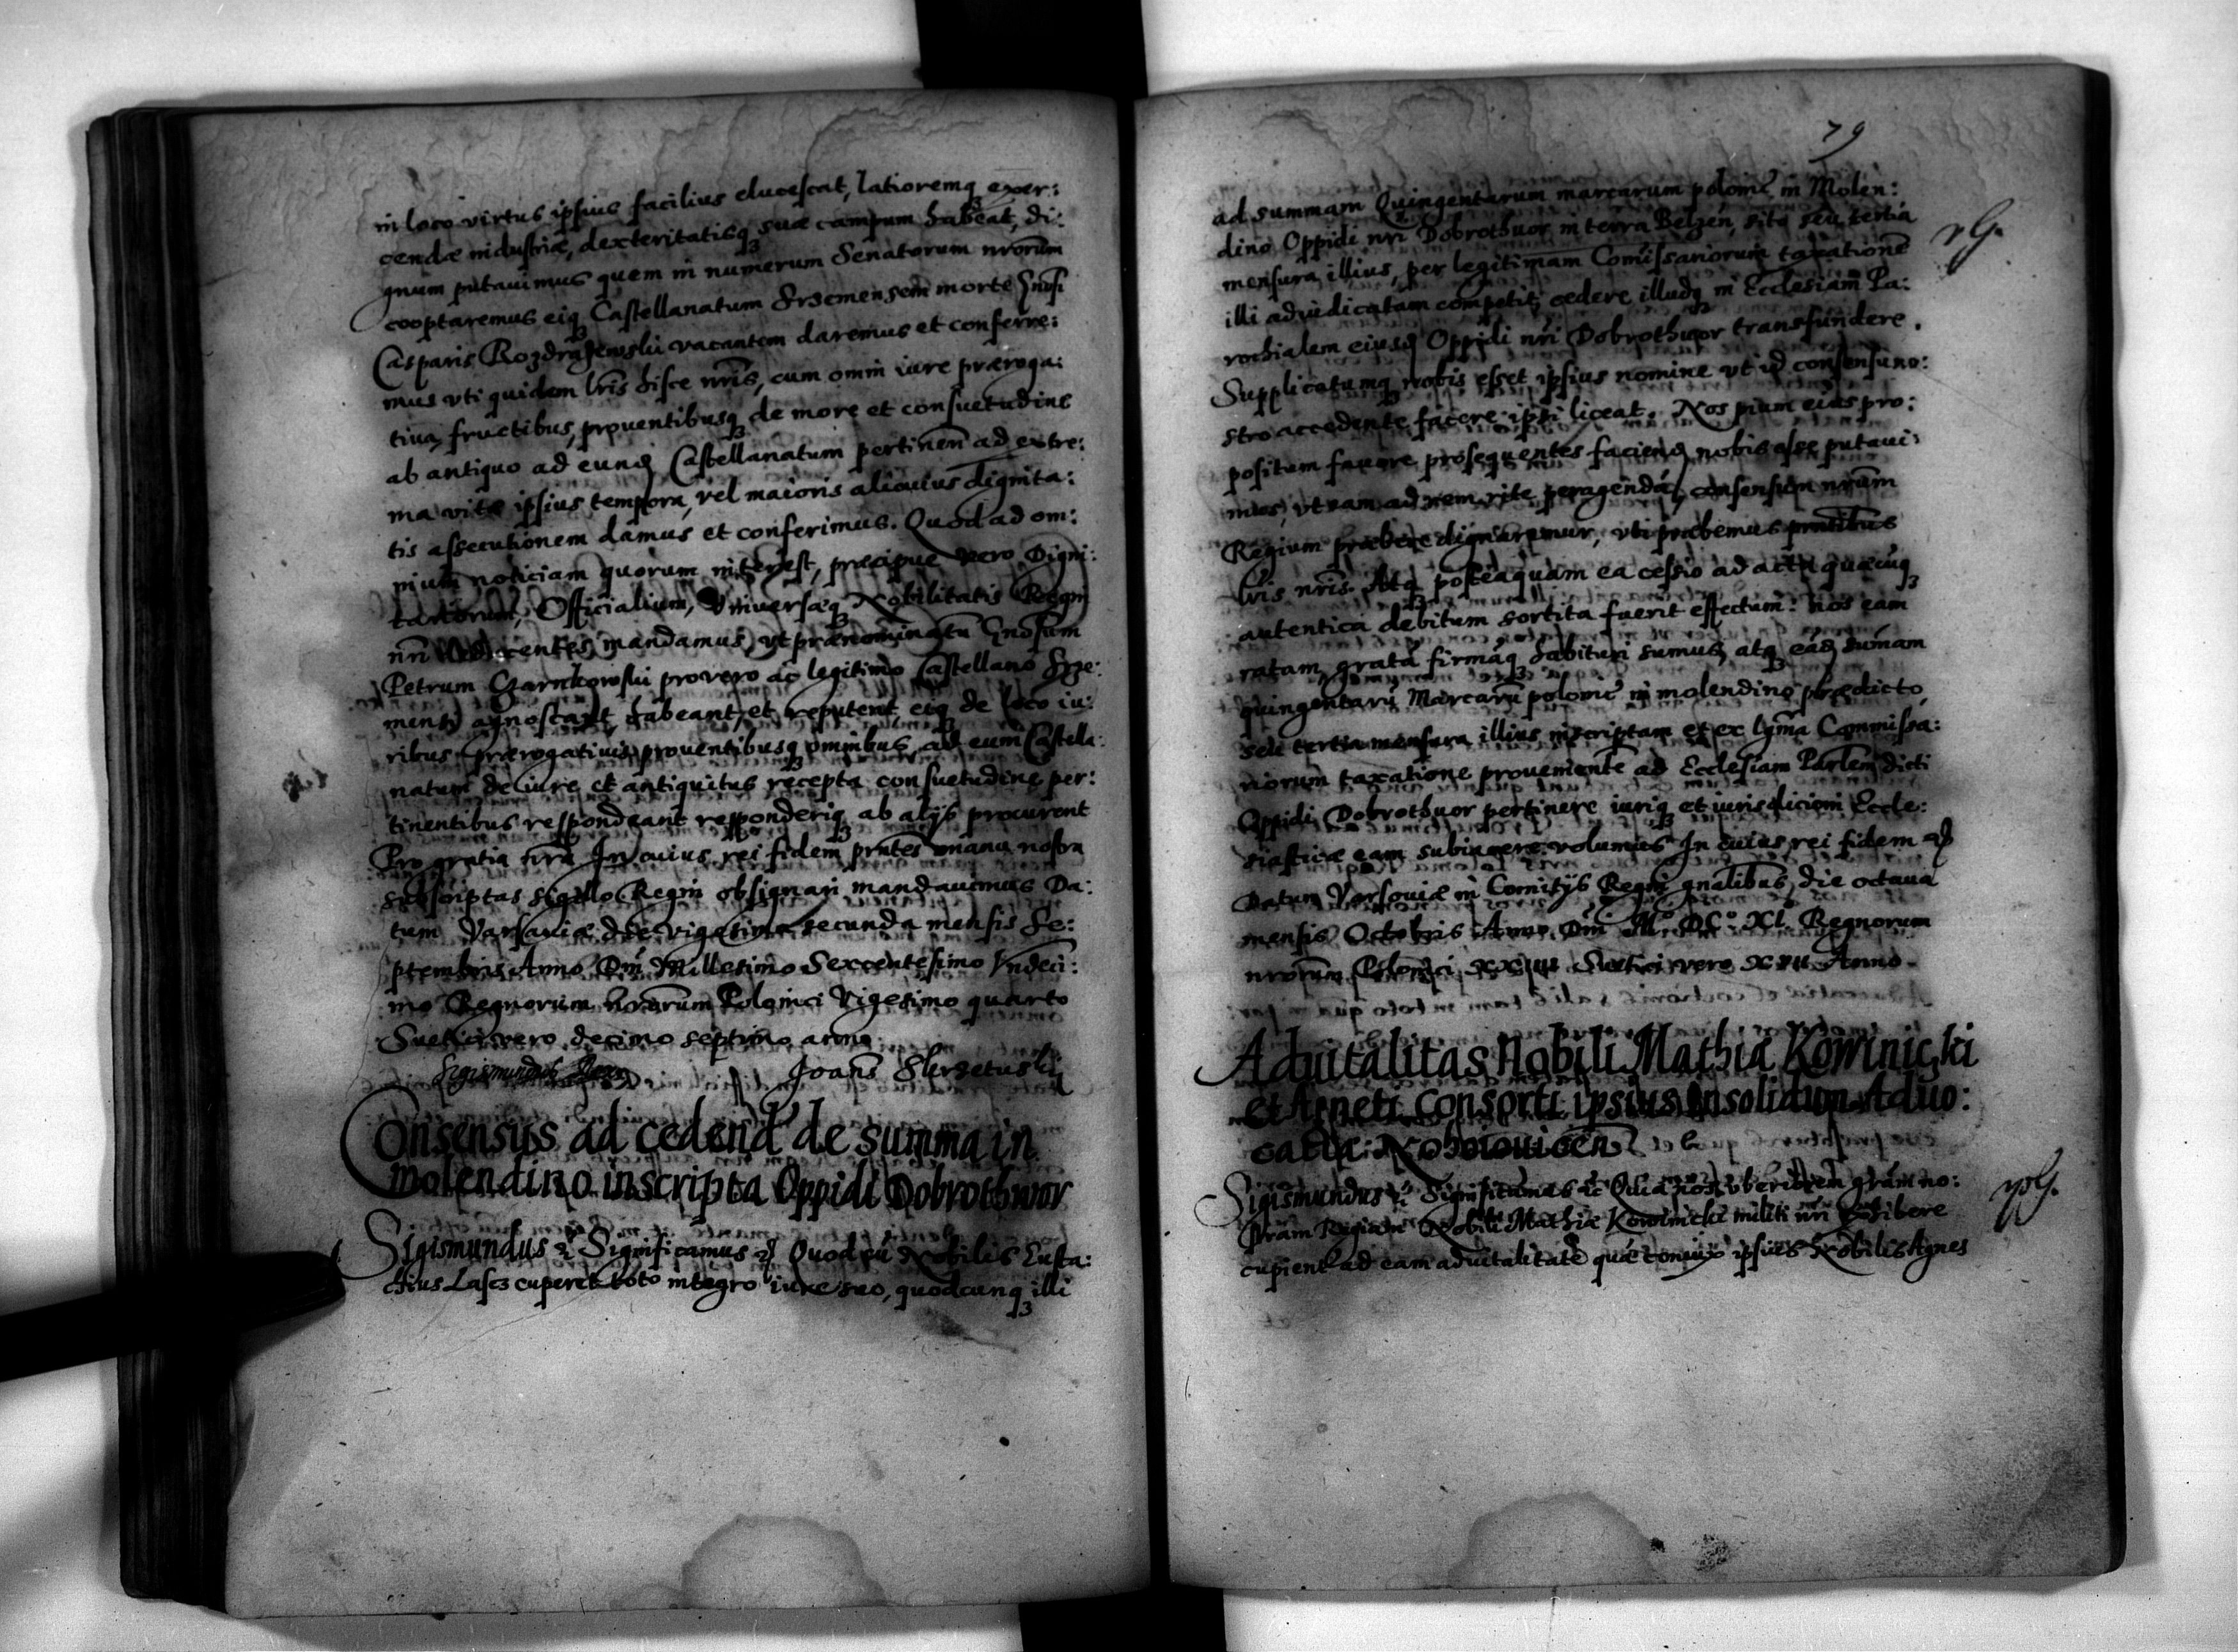 in loco virtus ipsius facilius elucescat, latioremq exer:
cendæ industriæ, dexteritatisq suæ campum habeat, di:
gnum putauimus quem in numerum Senatorum nrorum
cooptaremus eiq Castellanatum Srzemensem morte Gnosi
Casparis Rozdrażewskii vacantem daremus et conferre:
mus vti quidem lris hisce nris, cum omni iure præroga:
tiua, fructibus, prouentibusq de more et consuetudine
ab antiquo ad eund Castellanatum pertinen ad extre:
ma vitæ ipsius tempora, vel maioris alicuius dignita:
tis assecutionem damus et conferimus. Quod ad om:
nium noticiam quorum interest, præcipue vero Digni:
tariorum, Officialium, Vniversæq Nobilitatis Regni
nri mandamus, vt prænominatu Gnosum
Petrum Czarnkowski pro vero ac legitimo Castellano Srze:
mensi agnoscant, habeant, et reputent eiq de loco iu:
ribus prærogatiuis prouentibusq omnibus, ad eum Castela:
natum de iure et antiquitus recepta consuetudine per:
tinentibus respondeant responderiq ab alijs procurent
Pro gratia nra In cuius rei fidem pntes manu nostra
subscriptas sigillo Regni obsignari mandauimus Da:
tum Varsaviæ die vigesima secunda mensis Se:
ptembris Anno Dni Millesimo Sexcentesimo Vndeci:
mo Regnorum nostrum Polonici Vigesimo quarto
Suetici vero decimo septimo anno.
Sigismundus Rex Joans Skrzetuski
Consensus ad cedend de summa in
molendino inscripta Oppidi Dobrothwor
Sigismundus Significamus Quod cu Nobilis Eusta:
chius Lascz cuperet toto integro iure suo, quodcunq illi
79
ad summam Quingentarum marcarum polonic in Molen:
dino Oppidi nri Dobrothwor in terra Belzen sito seu tertia
mensura illius, per legitimam Comissariorum taxatione
illi adiudicatam competit, cedere illudq in Ecclesiam Pa:
rochialem eiusd Oppidi nri Dobrothwor transfundere.
Supplicatumq nobis esset ipsius nomine vt id consensu no:
stro accedente facere ipsi liceat. Nos pium eius pro:
positum fauore prosequentes faciend nobis esse putaui:
mus, vt eam ad rem rite peragendā consensum nrum
Regium præbere dignaremur, vti præbemus pntibus
lris nris. Atq posteaquam ea cessio ad acta quæcuq
autentica debitum sortita fuerit effectum: nos eam
ratam, gratā firmāq habituri sumus, atq eād sumam
quingentarū Marcarū polonic in molendino prædicto
seu tertia mensura illius inscriptam et ex lgma Commissa:
riorum taxatione proueniente ad Ecclesiam Parlem dicti
Oppidi Dobrothwor pertinere iuriq et iurisdictioni Eccle:
siasticæ eam subiacere volumus In cuius rei fidem
Datum Varsoviæ in Comitijs Regni gnalibus, die octaua
mensis Octobris Anno Dni Mo DCo XI. Regnorum
nrorum Polonici XXIIII Suetici vero XVII Anno.
Aduitalitas Nobili Mathiæ Kowinicki
et Agneti Consorti ipsius in solidum Aduo:
catia:
Sigismundus Significamus Quia nos vberiorem gram no:
stram Regiam Nobili Mathiæ Kowinicki militi nri exhibere
cupientes ad eam aduitalitate quæ coniux ipsius Nobilis Agnes